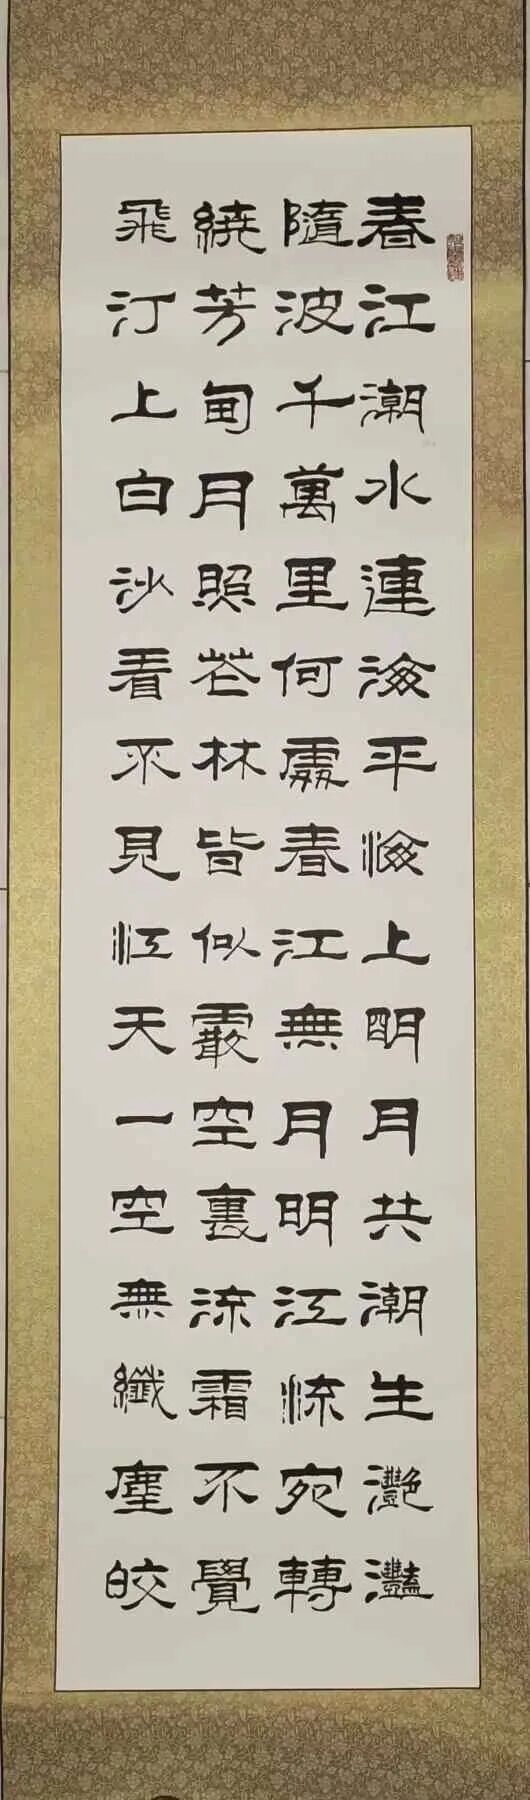 春江潮水連海平海上明月共潮生灔灩
隨波千萬里何處春江無月明江流宛轉
繞芳甸月照花林皆似霰空裏流霜不覺
飛汀上白沙看不見江天一空無纖塵皎